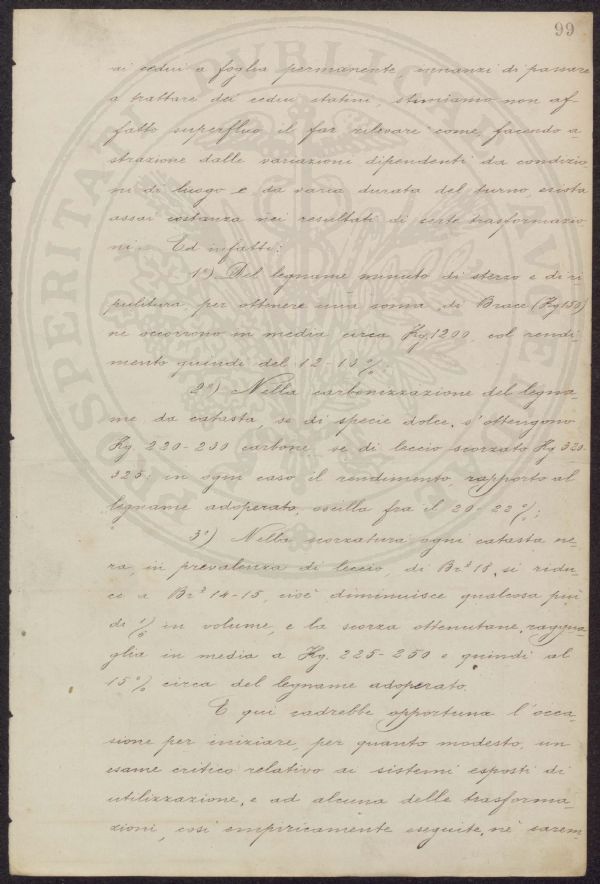 99
ai cedui a foglia permanente, innanzi di passare
a trattare dei cedui statini, stimiamo non af-
fatto superfluo il far rilevare come, facendo a-
strazione dalle variazioni dipendenti da condizio
ni di luogo e da varia durata del turno, esista
assai costanza nei resultati di certe trasformazio
ni. Ed infatti:
1°) Del legname minuto di sterzo e di ri
pulitura per ottenere una soma di Brace (Kg 150)
ne occorrono in media circa Kg. 1200, col rendi-
mento quindi del 12-13%;
2°) Nella carbonizzazione del legna-
me da catasta, se di specie dolce, s'ottengono
Kg. 220-230 carbone, se di leccio scorzato Kg 320-
325: in ogni caso il rendimento, rapporto al
legname adoperato, oscilla fra il 20-22%;
3°) Nella scorzatura ogni catasta ne-
ra, in prevalenza di leccio, di Br.ª 18, si ridu-
ce a Br.ª 14-15, cioè diminuisce qualcosa più
di 1/5 in volume, e la scorza ottenutane, raggua-
glia in media a Kg. 225-250 e quindi al
15% circa del legname adoperato.
E qui cadrebbe opportuna l'occa-
sione per iniziare, per quanto modesto, un
esame critico relativo ai sistemi esposti di
utilizzazione, e ad alcuna delle trasforma-
zioni, così empiricamente eseguite, nè sarem-
PUBLICAE
PROSPERITATI